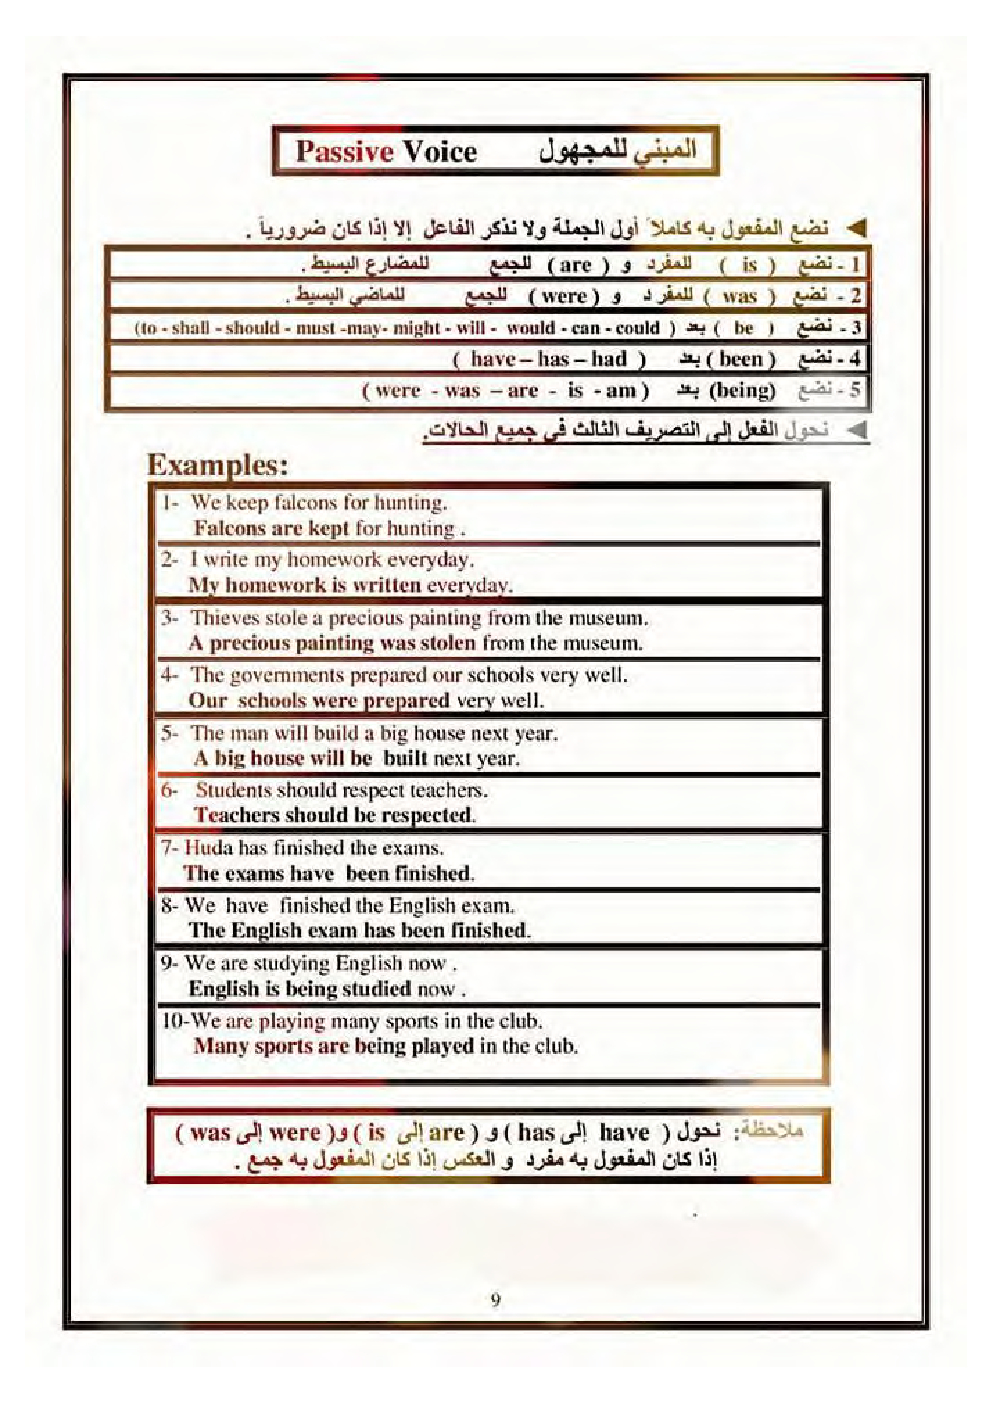 Passive Voice المبني للمجهول
نضع المفعول به كاملاً أول الجملة ولا نذكر الفاعل إلا إذا كان ضرورياً .
1 - نضع ( is ) للمفرد و ( are ) للجمع للمضارع البسيط .
2 - نضع ( was ) للمفرد و ( were ) للجمع للماضي البسيط .
3 - نضع ( be ) بعد ( to - shall - should - must -may- might - will - would - can - could)
4 - نضع ( been ) بعد ( have – has – had )
5 - نضع (being) بعد ( were - was – are - is - am )
نحول الفعل إلى التصريف الثالث في جميع الحالات.
Examples:
1- We keep falcons for hunting.
Falcons are kept for hunting .
2- I write my homework everyday.
My homework is written everyday.
3- Thieves stole a precious painting from the museum.
A precious painting was stolen from the museum.
4- The governments prepared our schools very well.
Our schools were prepared very well.
5- The man will build a big house next year.
A big house will be built next year.
6- Students should respect teachers.
Teachers should be respected.
7- Huda has finished the exams.
The exams have been finished.
8- We have finished the English exam.
The English exam has been finished.
9- We are studying English now .
English is being studied now .
10-We are playing many sports in the club.
Many sports are being played in the club.
ملاحظة: نحول ( have إلى has ) و ( are إلى is ) و( were إلى was )
إذا كان المفعول به مفرد و العكس إذا كان المفعول به جمع .
9